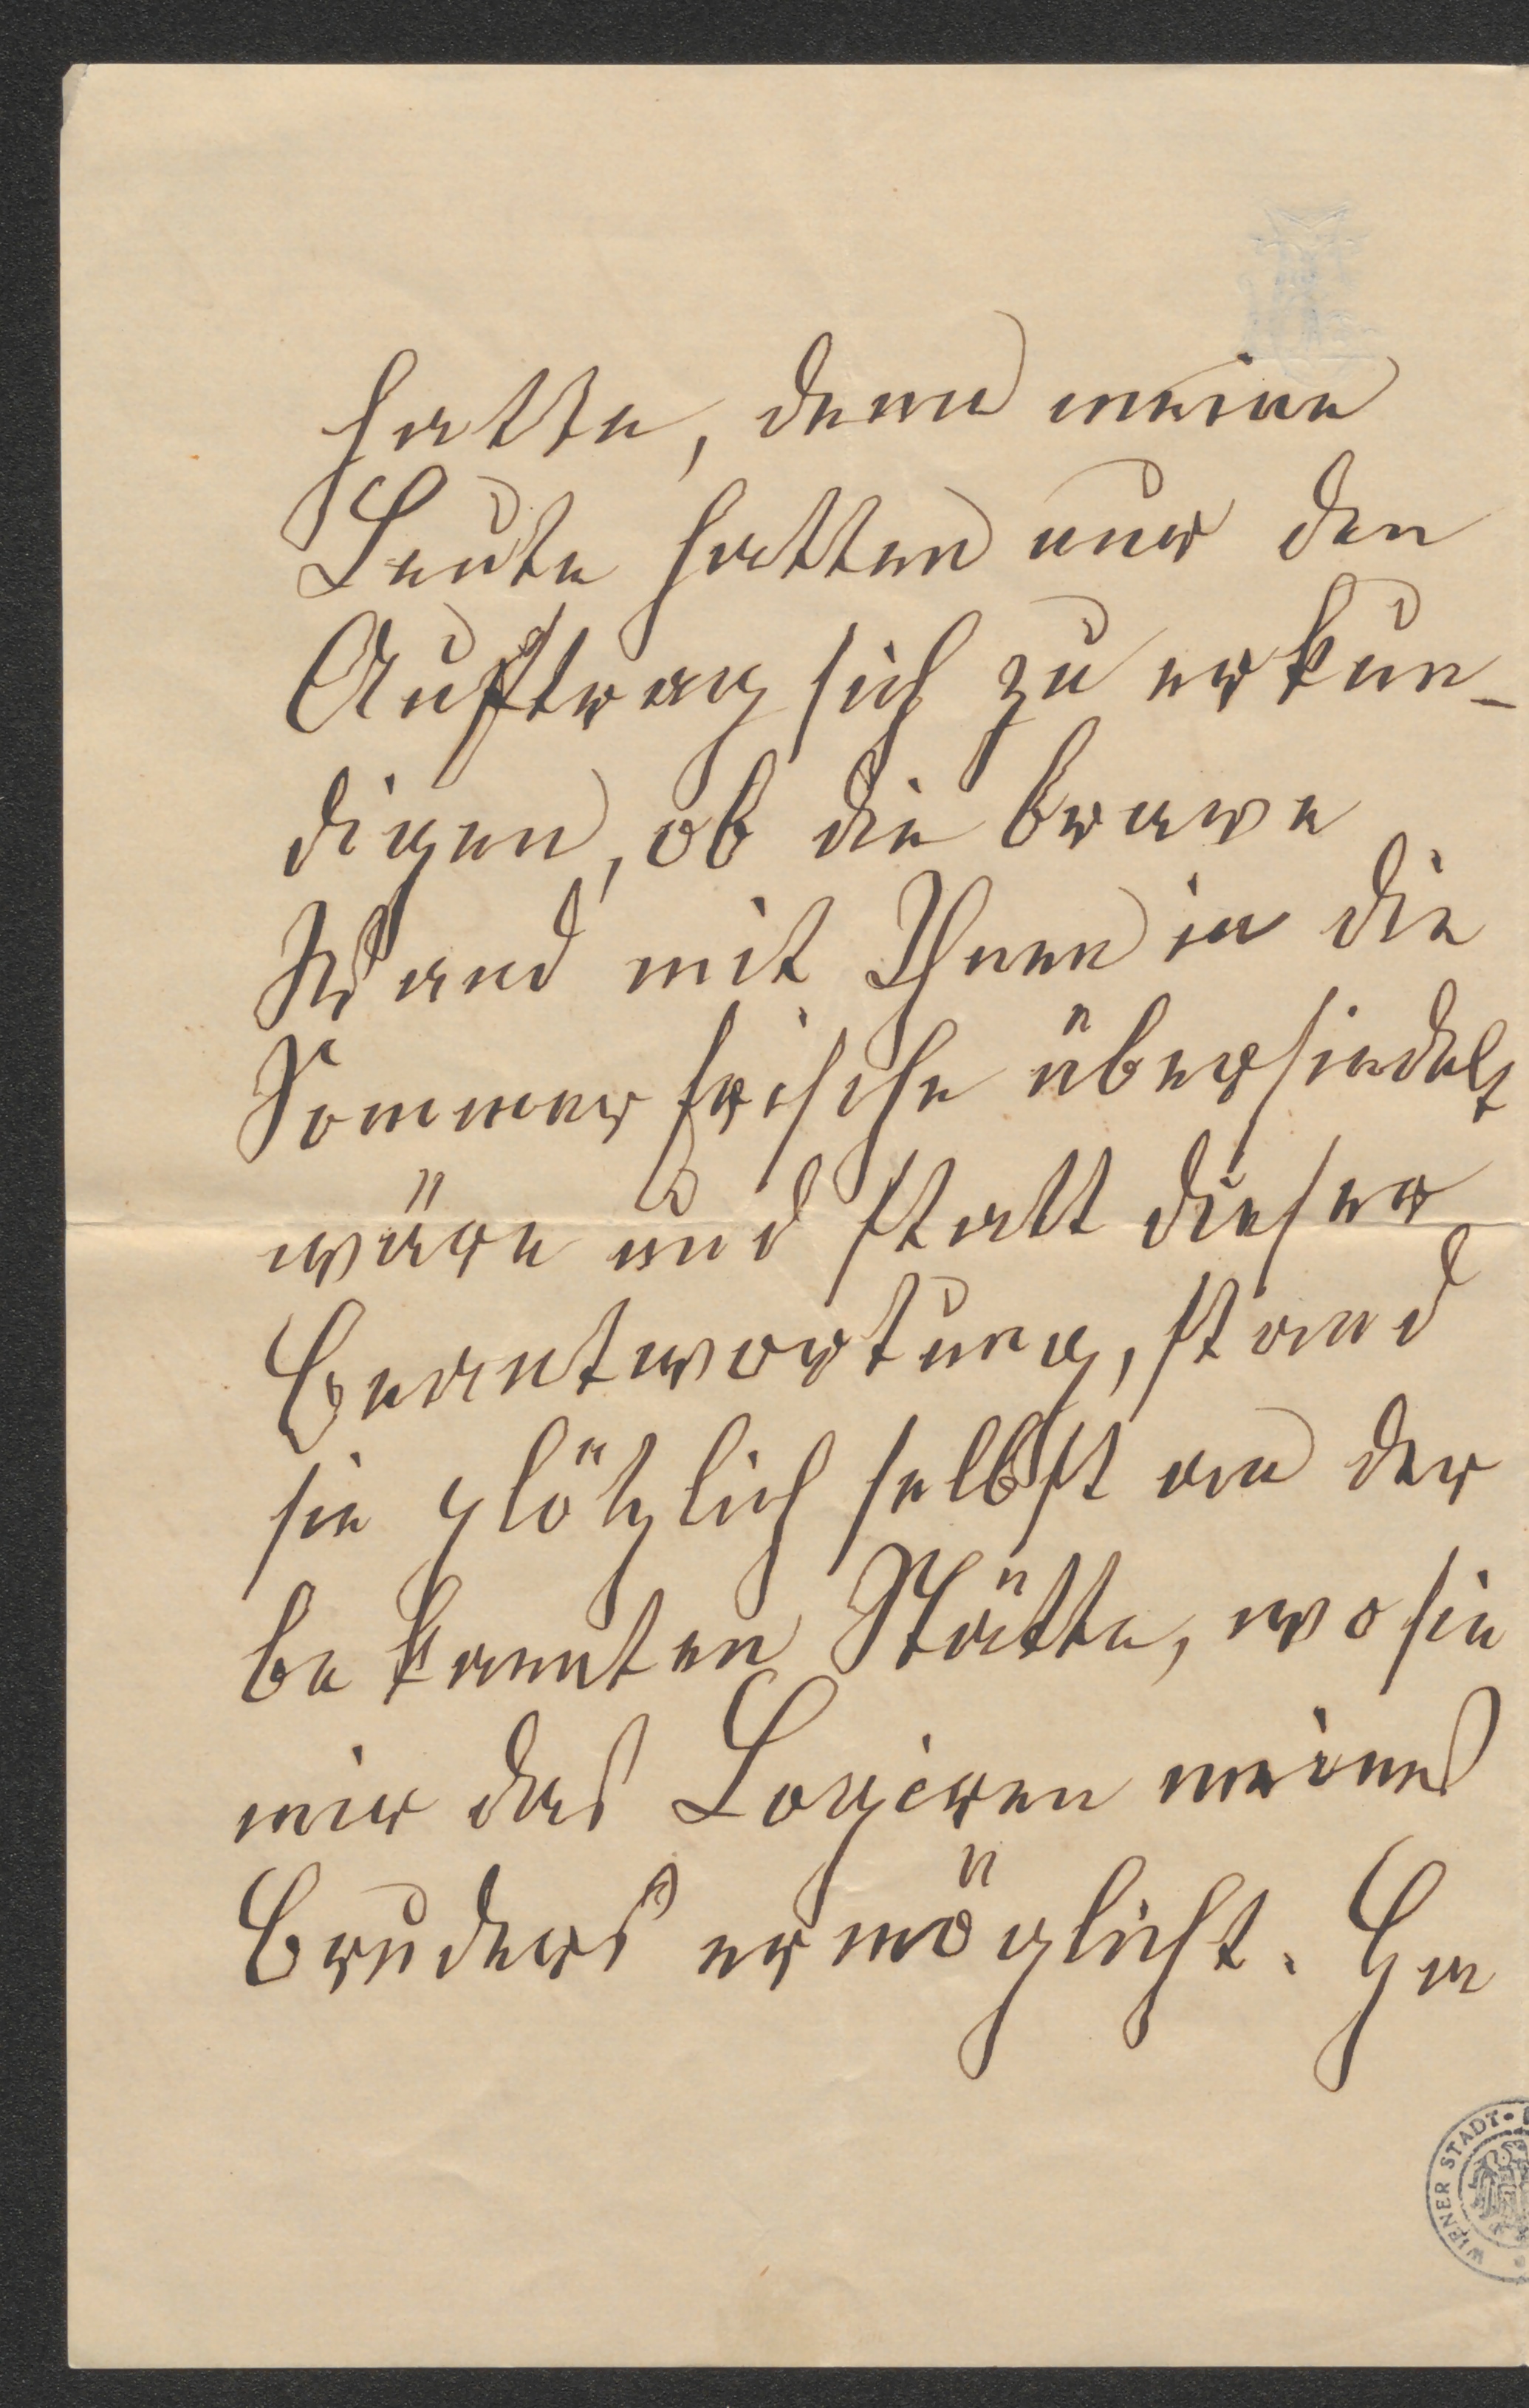 hatte, denn meine
Leute hatten nur den
Auftrag sich zu erkun-
digen, ob die brave
Wand mit Ihnen in die
Sommerfrische übersiedelt
wäre und statt dieser
Beantwortung, stand
sie plötzlich selbst an der
bekannten Stätte, wo sie
mir das Logieren meines
Bruders ermöglicht.
WIENER STADT-